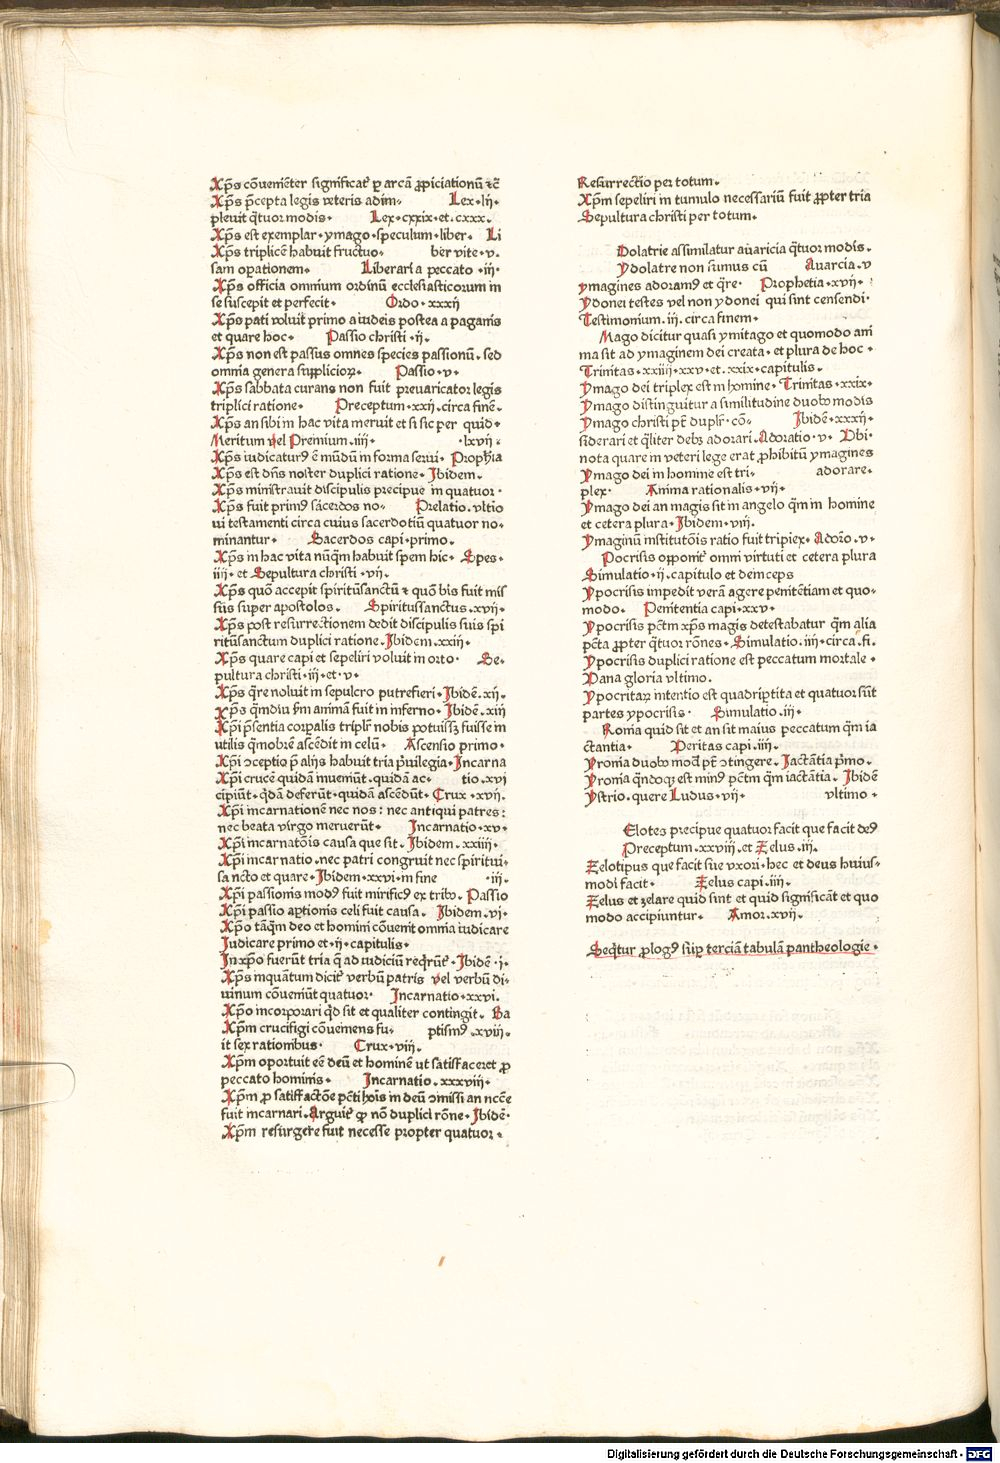 Xp̄s cōueniēter significat᷑ ꝑ arcā ꝓpiciationū ⁊c̄
Xp̄s p̄cepta legis veteris adim⸗ Lex·lij·
pleuit q̄tuor modis· Lex·cxxix·et·cxxx·
Xp̄s est exemplar·ymago·speculum·liber· Li
Xp̄s triplicē habuit fructuo⸗ ber vite·v·
sam oꝑationem· Liberari a peccato·iij·
Xp̄s officia omnium ordinū ecclesiasticorum in
se suscepit et perfecit· Ordo·xxxij
Xp̄s pati voluit primo a iudeis postea a paganis
et quare hoc· Passio christi·ij·
Xp̄s non est passus omnes species passionū·sed
omnia genera suppliciorꝝ· Passio·v·
Xp̄s sabbata curans non fuit preuaricator legis
triplici ratione· Preceptum·xxij·circa finē·
Xp̄s an sibi in hac vita meruit et si sic per quid·
Meritum vel Premium·iiij· ·lxvij·
Xp̄s iudicaturꝰ ē mūdū in forma serui· Prophīa
Xp̄s est dn̄s noster duplici ratione·Ibidem·
Xp̄s ministrauit discipulis precipue in quatuor·
Xp̄s fuit primꝰ sacerdos no⸗ Prelatio·vltio
ui testamenti circa cuius sacerdotiū quatuor no⸗
minantur· Sacerdos capi·primo·
Xp̄s in hac vita nūq̄m habuit spem hic· Spes·
iiij·et Sepultura christi·vij·
Xp̄s quō accepit spiritūsanctū ⁊ quō bis fuit mis
sus super apostolos· Spiritussanctus·xvij·
Xp̄s post resurrectionem dedit discipulis suis spi
ritūsanctum duplici ratione·Ibidem·xxiij·
Xp̄s quare capi et sepeliri voluit in orto· Se⸗
pultura christi·iij·et·v·
Xp̄s q̄re noluit in sepulcro putrefieri·Ibidē·xij·
Xp̄s q̄mdiu s̄m animā fuit in inferno·Ibidē·xiij
Xp̄i p̄sentia corꝑalis triplr̄ nobis potuissꝫ fuisse in
utilis q̄mobrē ascēdit in celū· Ascensio primo·
Xp̄i ɔceptio p̄ alijs habuit tria p̄uilegia·Incarna
Xp̄i crucē quidā inueniūt·quidā ac⸗ tio·xvi
cipiūt·q̄dā deferūt·quidā ascēdūt·Crux·xvij·
Xp̄i incarnationē nec nos: nec antiqui patres:
nec beata virgo meruerūt· Incarnatio·xv·
Xp̄i incarnatōis causa que sit·Ibidem·xxiij·
Xp̄i incarnatio·nec patri congruit nec spiritui⸗
sancto et quare·Ibidem·xxvi·in fine ·iij·
Xp̄i passionis modꝰ fuit mirificꝰ ex tribꝰ·Passio
Xp̄i passio aꝑtionis celi fuit causa· Ibidem·vi·
Xp̄o tāq̄m deo et homini cōuenit omnia iudicare
Iudicare primo et·ij·capitulis·
In xp̄o fuerūt tria q̄ ad iudiciū req̄rūt᷑·Ibidē·i·
Xp̄s inquātum dicit᷑ verbū patris vel verbū di⸗
uinum cōueniūt quatuor· Incarnatio·xxvi·
Xp̄o incorporari q̄d sit et qualiter contingit· Ba
Xp̄m crucifigi cōueniens fu⸗ ptismꝰ·xviij·
it sex rationibus· Crux·viij·
Xp̄m oportuit eē deū et hominē ut satisfaceret ꝓ
peccato hominis· Incarnatio·xxxviij·
Xp̄m ꝓ satisfactōe pc̄ti hoīs in deū ɔmissi an ncc̄e
fuit incarnari·Arguit᷑ ꝙ nō duplici rōne·Ibidē·
Xp̄m resurgere fuit necesse propter quatuor·
Resurrectio per totum·
Xp̄m sepeliri in tumulo necessariū fuit ꝓpter tria
Sepultura christi per totum·
Dolatrie assimilatur auaricia q̄tuor modis·
Ydolatre non sumus cū Auarcia·v
ymagines adoramꝰ et q̄re· Prophetia·xvij·
Ydonei testes vel non ydonei qui sint censendi·
Testimonium·iij·circa finem·
Mago dicitur quasi ymitago et quomodo ani
ma sit ad ymaginem dei creata·et plura de hoc·
Trinitas·xxiiij·xxv·et·xxix·capitulis·
Ymago dei triplex est in homine·Trinitas·xxix·
Ymago distinguitur a similitudine duobꝰ modis
Ymago christi pt̄ duplr̄·cō⸗ Ibidē·xxxij·
siderari et q̄liter debꝫ adorari·Adoratio·v· Vbi·
nota quare in veteri lege erat ꝓhibitū ymagines
Ymago dei in homine est tri⸗ adorare·
plex· Anima rationalis·vij·
Ymago dei an magis sit in angelo q̄m in homine
et cetera plura·Ibidem·viij·
Ymaginū institutōis ratio fuit triplex·Adorō·v·
Pocrisis opponit᷑ omni virtuti et cetera plura
Simulatio·ij·capitulo et deinceps
Ypocrisis impedit verā agere penitētiam et quo⸗
modo· Penitentia capi·xxv·
Ypocrisis pc̄tm xp̄s magis detestabatur q̄m alia
pc̄ta ꝓpter q̄tuor rōnes·Simulatio·iij·circa·fi·
Ypocrisis duplici ratione est peccatum mortale·
Vana gloria vltimo·
Ypocritarꝝ intentio est quadripartita et quatuor sūt
partes ypocrisis· Simulatio·iij·
Ronia quid sit et an sit maius peccatum q̄m ia
ctantia· Veritas capi·iiij·
Yronia duobꝰ mod̄ pt̄ ɔtingere·Iactātia p̄mo·
Yronia q̄ndoqꝫ est minꝰ pc̄tm q̄m iactātia· Ibidē
Ystrio·quere Ludus·vij· vltimo·
Elotes precipue quatuor facit que facit deꝰ
Preceptum·xxviij·et Zelus·iij·
Zelotipus que facit sue vxori·hec et deus huius⸗
modi facit· Zelus capi·iiij·
Zelus et zelare quid sint et quid significāt et quo
modo accipiuntur· Amor·xvij·
Seq̄tur ꝓlogꝰ suꝑ terciā tabulā pantheologie·
Digitalisierung gefördert durch die Deutsche Forschungsgemeinschaft - DFG